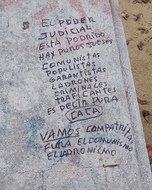 EL PODER
JUDICIAL
ESTÁ PODRIDO
HAY PUROS SUCIOS
COMUNISTAS
POPULISTAS
GARANTISTAS
LADRONES
CRIMINALES
TRAFICANTES
ES DECIR PURA
CACA
VAMOS COMPATRIOTAS
FUERA EL COMUNISMO
EL LADRONISMO